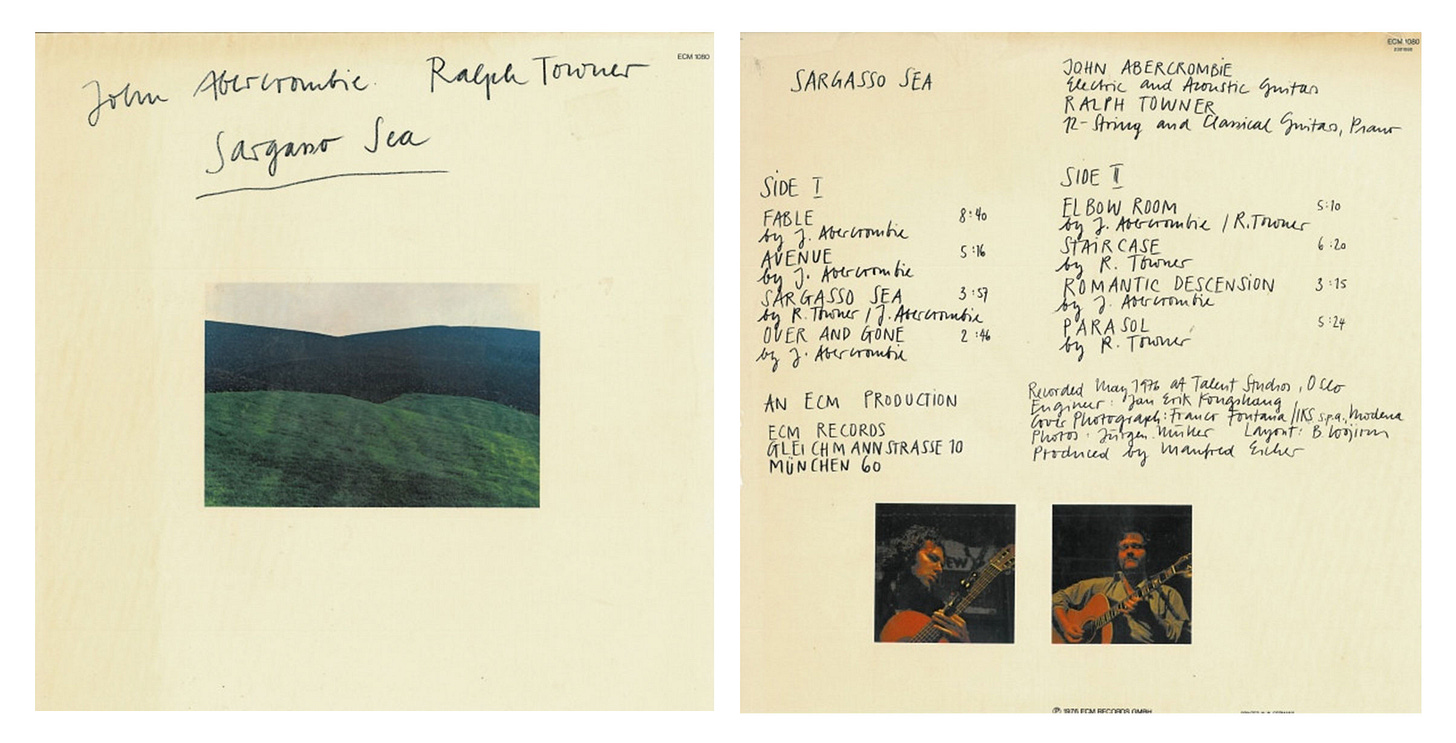 John Abercrombie. Ralph Towner
ECM 1080
Sargasso Sea
ECM 1080
SARGASSO SEA
JOHN ABERCROMBIE
Electric and Acoustic Guitars
RALPH TOWNER
12-String and Classical Guitars, Piano
SIDE I
FABLE 8:40
by J. Abercrombie
AVENUE 5:16
by J. Abercrombie
SARGASSO SEA 3:57
by R. Towner / J. Abercrombie
OVER AND GONE 2:46
by J. Abercrombie
SIDE II
ELBOW ROOM 5:10
by J. Abercrombie / R. Towner
STAIRCASE 6:20
by R. Towner
ROMANTIC DESCENSION 3:15
by J. Abercrombie
PARASOL 5:24
by R. Towner
AN ECM PRODUCTION
ECM RECORDS
GLEICHMANNSTRASSE 10
MÜNCHEN 60
Recorded May 1976 at Talent Studios, Oslo
Engineer: Jan Erik Kongshaug
Cover Photograph: Franco Fontana / IKS s.p.a., Modena
Photos: Jürgen Layout: B. Wojirsch
Produced by Manfred Eicher
℗ 1976 ECM RECORDS GMBH